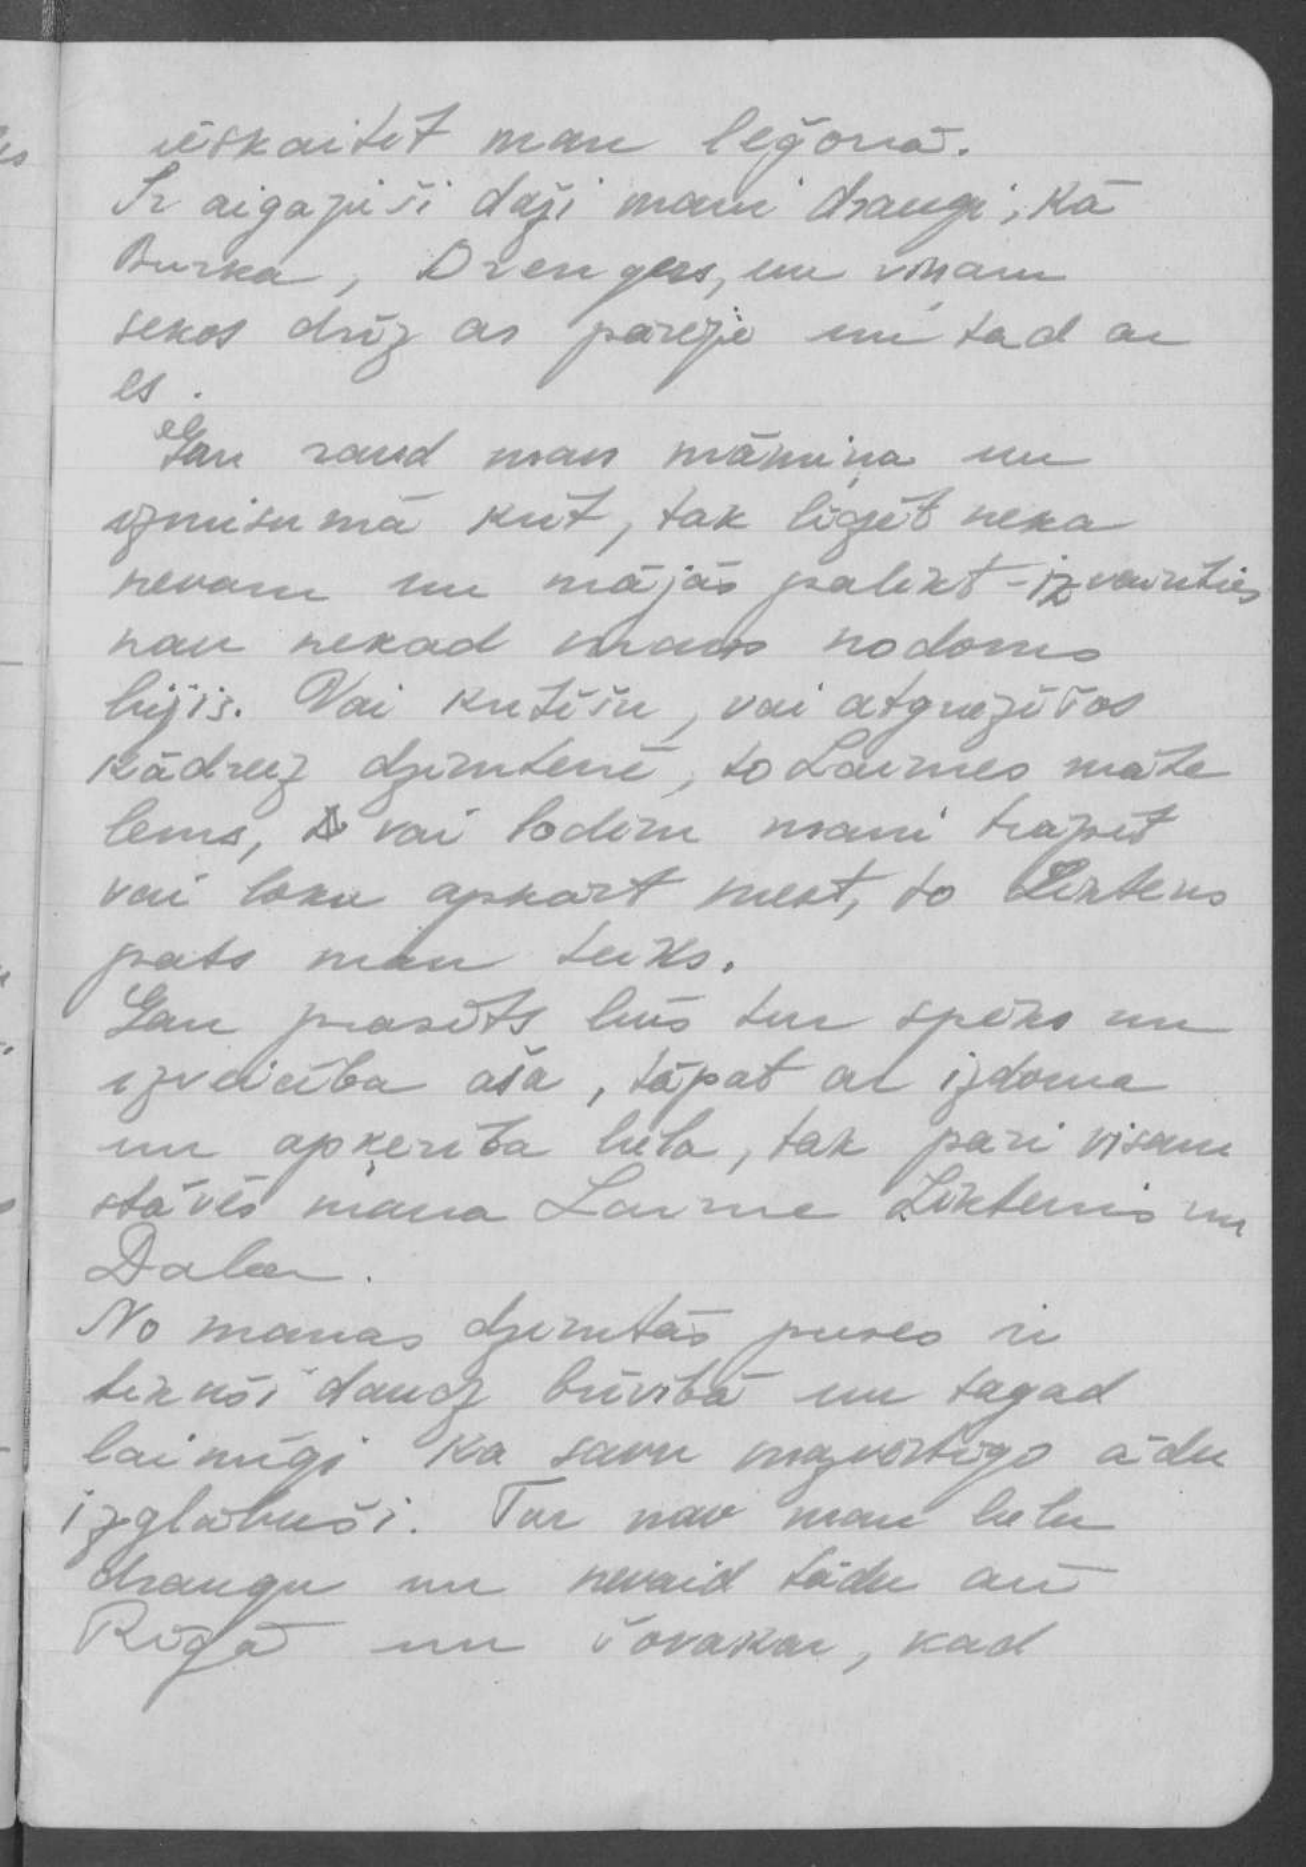 ieskaitet man leğonā.
Ir aizgājiši daži mani draugi, kā
Burka, Drengers, un viņam
sekos drīz ar parejie un tad ar
es.
Gan raud man māmiņa un
izmisumā krīt, tak līdzēt neka
nevaru un mājās palikt - izvairīties
nau nekad mans nodoms
bijis. Vai kritīšu, vai atgriezīšos
kādreiz dzimtenē, to Laimes māte
lems, vai lodēm mani trāpīt
vai loku apkārt mest, to Liktens
pats man teiks.
Gan prasīts būs tur spēks un
izveicība aša, tāpat ar izdoma
un apķerība liela, tak pari visam
stāvēs mana Laime Liktenis un
Daba.
No manas dzimtās puses ir
bijuši daudz brīvībā un tagad
laimīgi ka savu mazvērtīgo ādu
izglābuši. Tur nav man lielu
draugu un nevaid tādu arī
Rīgā un šovakar, kad